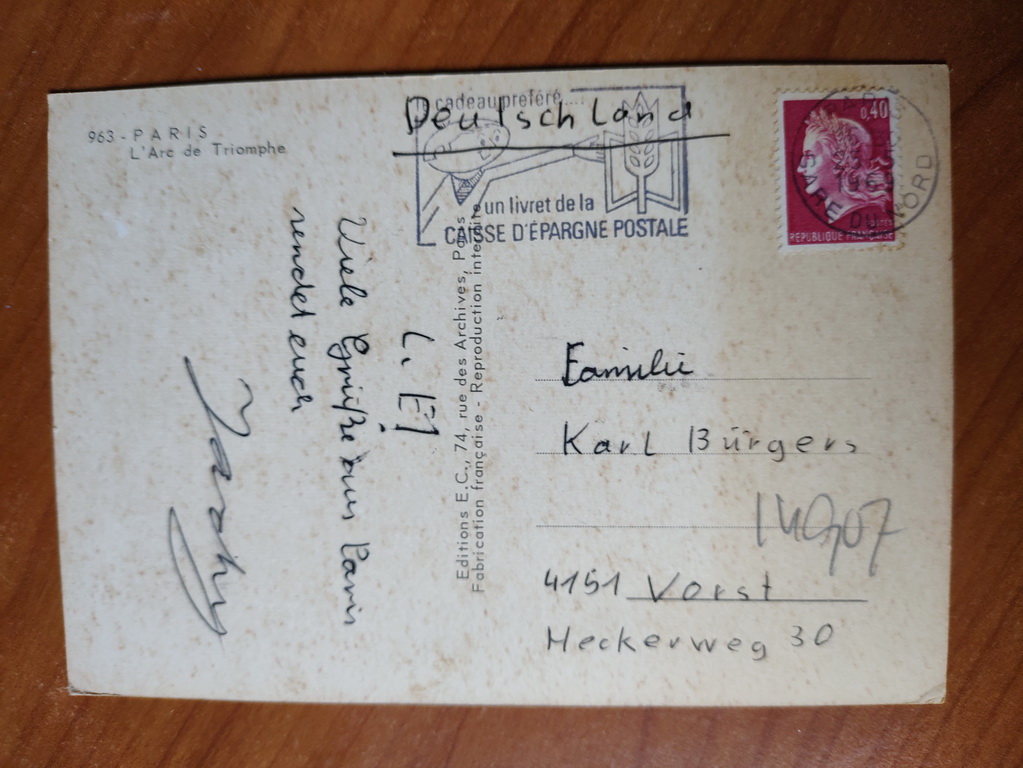 963 - PARIS
L'Arc de Triomphe
cadeau préféré....
un livret de la
CAISSE D'ÉPARGNE POSTALE
Deutschland
0,40
REPUBLIQUE FRANÇAISE
PARIS
GARE DU NORD
Editions E.C., 74, rue des Archives, Paris
Fabrication française - Reproduction interdite
L. E!
Viele Grüße aus Paris
sendet euch
Familie
Karl Bürgers
4151 Vorst
Heckerweg 30